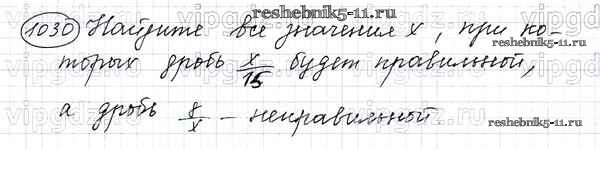 reshebnik5-11.ru
1030 Найдите все значения x, при ко-
торых дробь x/15 будет правильной,
а дробь 8/x - неправильной.
reshebnik5-11.ru
reshebnik5-11.ru